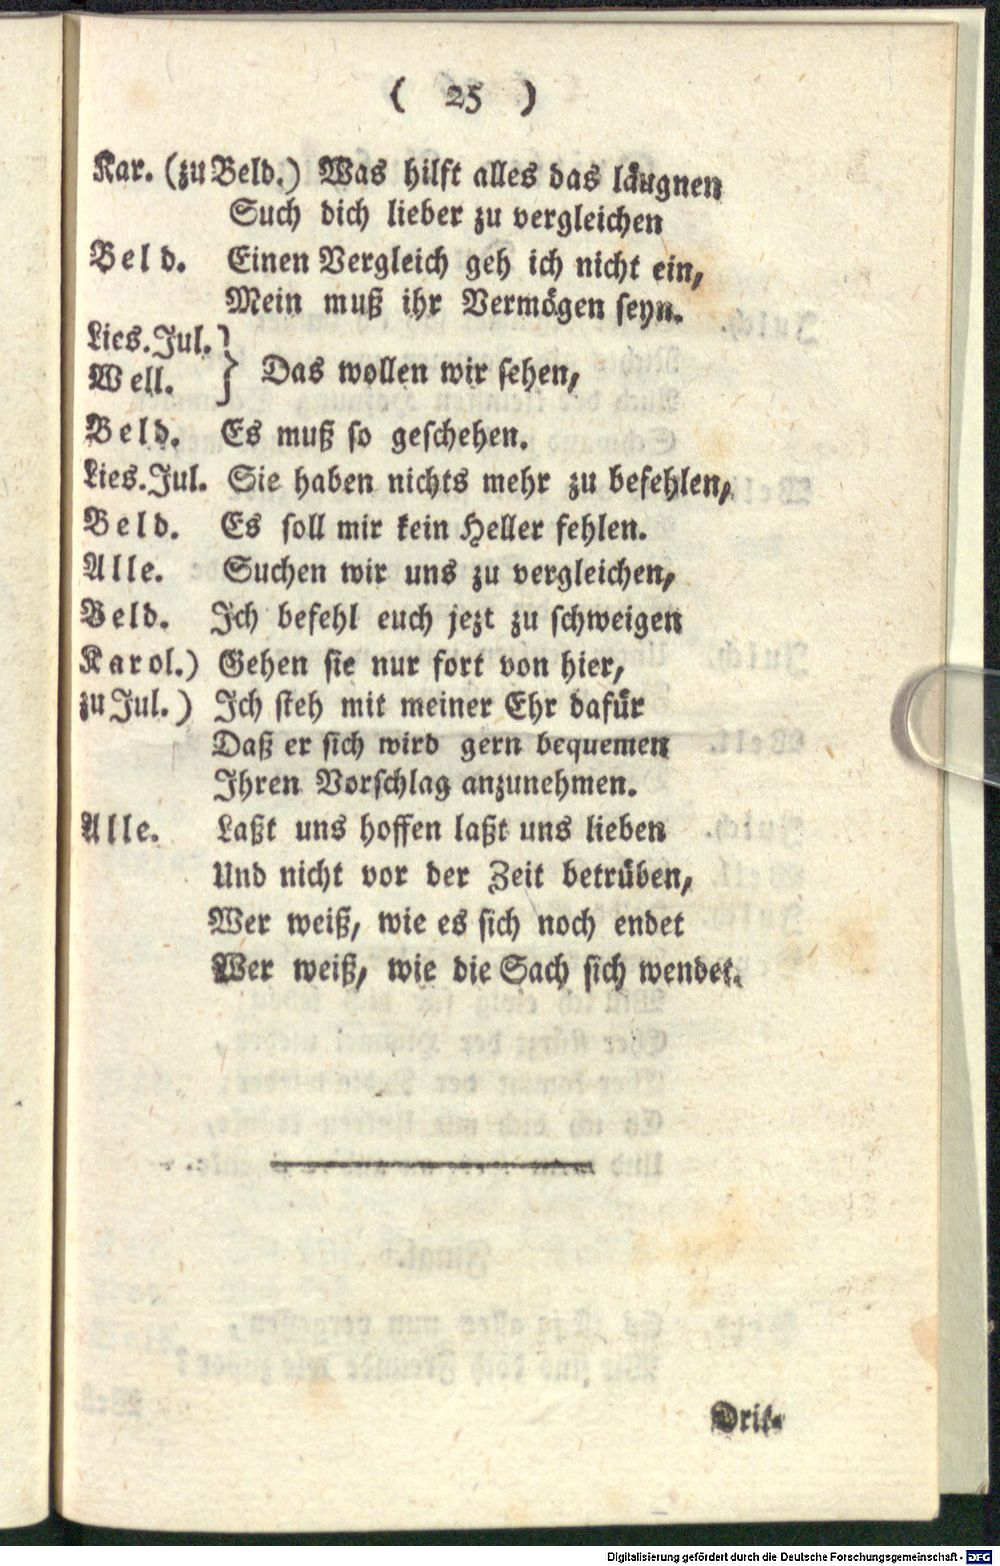 ( 25 )
Kar. (zu Beld.) Was hilft alles das läugnen
Such dich lieber zu vergleichen
Beld. Einen Vergleich geh ich nicht ein,
Mein muß ihr Vermögen seyn.
Lies. Jul. }
Well. } Das wollen wir sehen,
Beld. Es muß so geschehen.
Lies. Jul. Sie haben nichts mehr zu befehlen,
Beld. Es soll mir kein Heller fehlen.
Alle. Suchen wir uns zu vergleichen,
Beld. Ich befehl euch jezt zu schweigen
Karol.) Gehen sie nur fort von hier,
zu Jul.) Ich steh mit meiner Ehr dafür
Daß er sich wird gern bequemen
Ihren Vorschlag anzunehmen.
Alle. Laßt uns hoffen laßt uns lieben
Und nicht vor der Zeit betrüben,
Wer weiß, wie es sich noch endet
Wer weiß, wie die Sach sich wendet.
Drit-
Digitalisierung gefördert durch die Deutsche Forschungsgemeinschaft - DFG